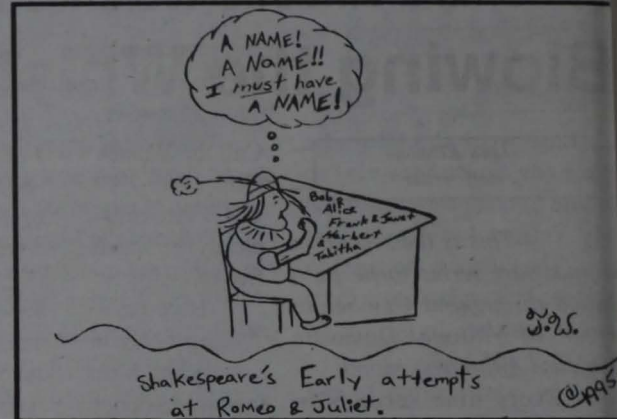 Blowing
A NAME!
A NAME!!
I must have
A NAME!
Bob &
Alice
Frank & Janet
& Herbert
Tabitha
Shakespeare's Early attempts
at Romeo & Juliet.